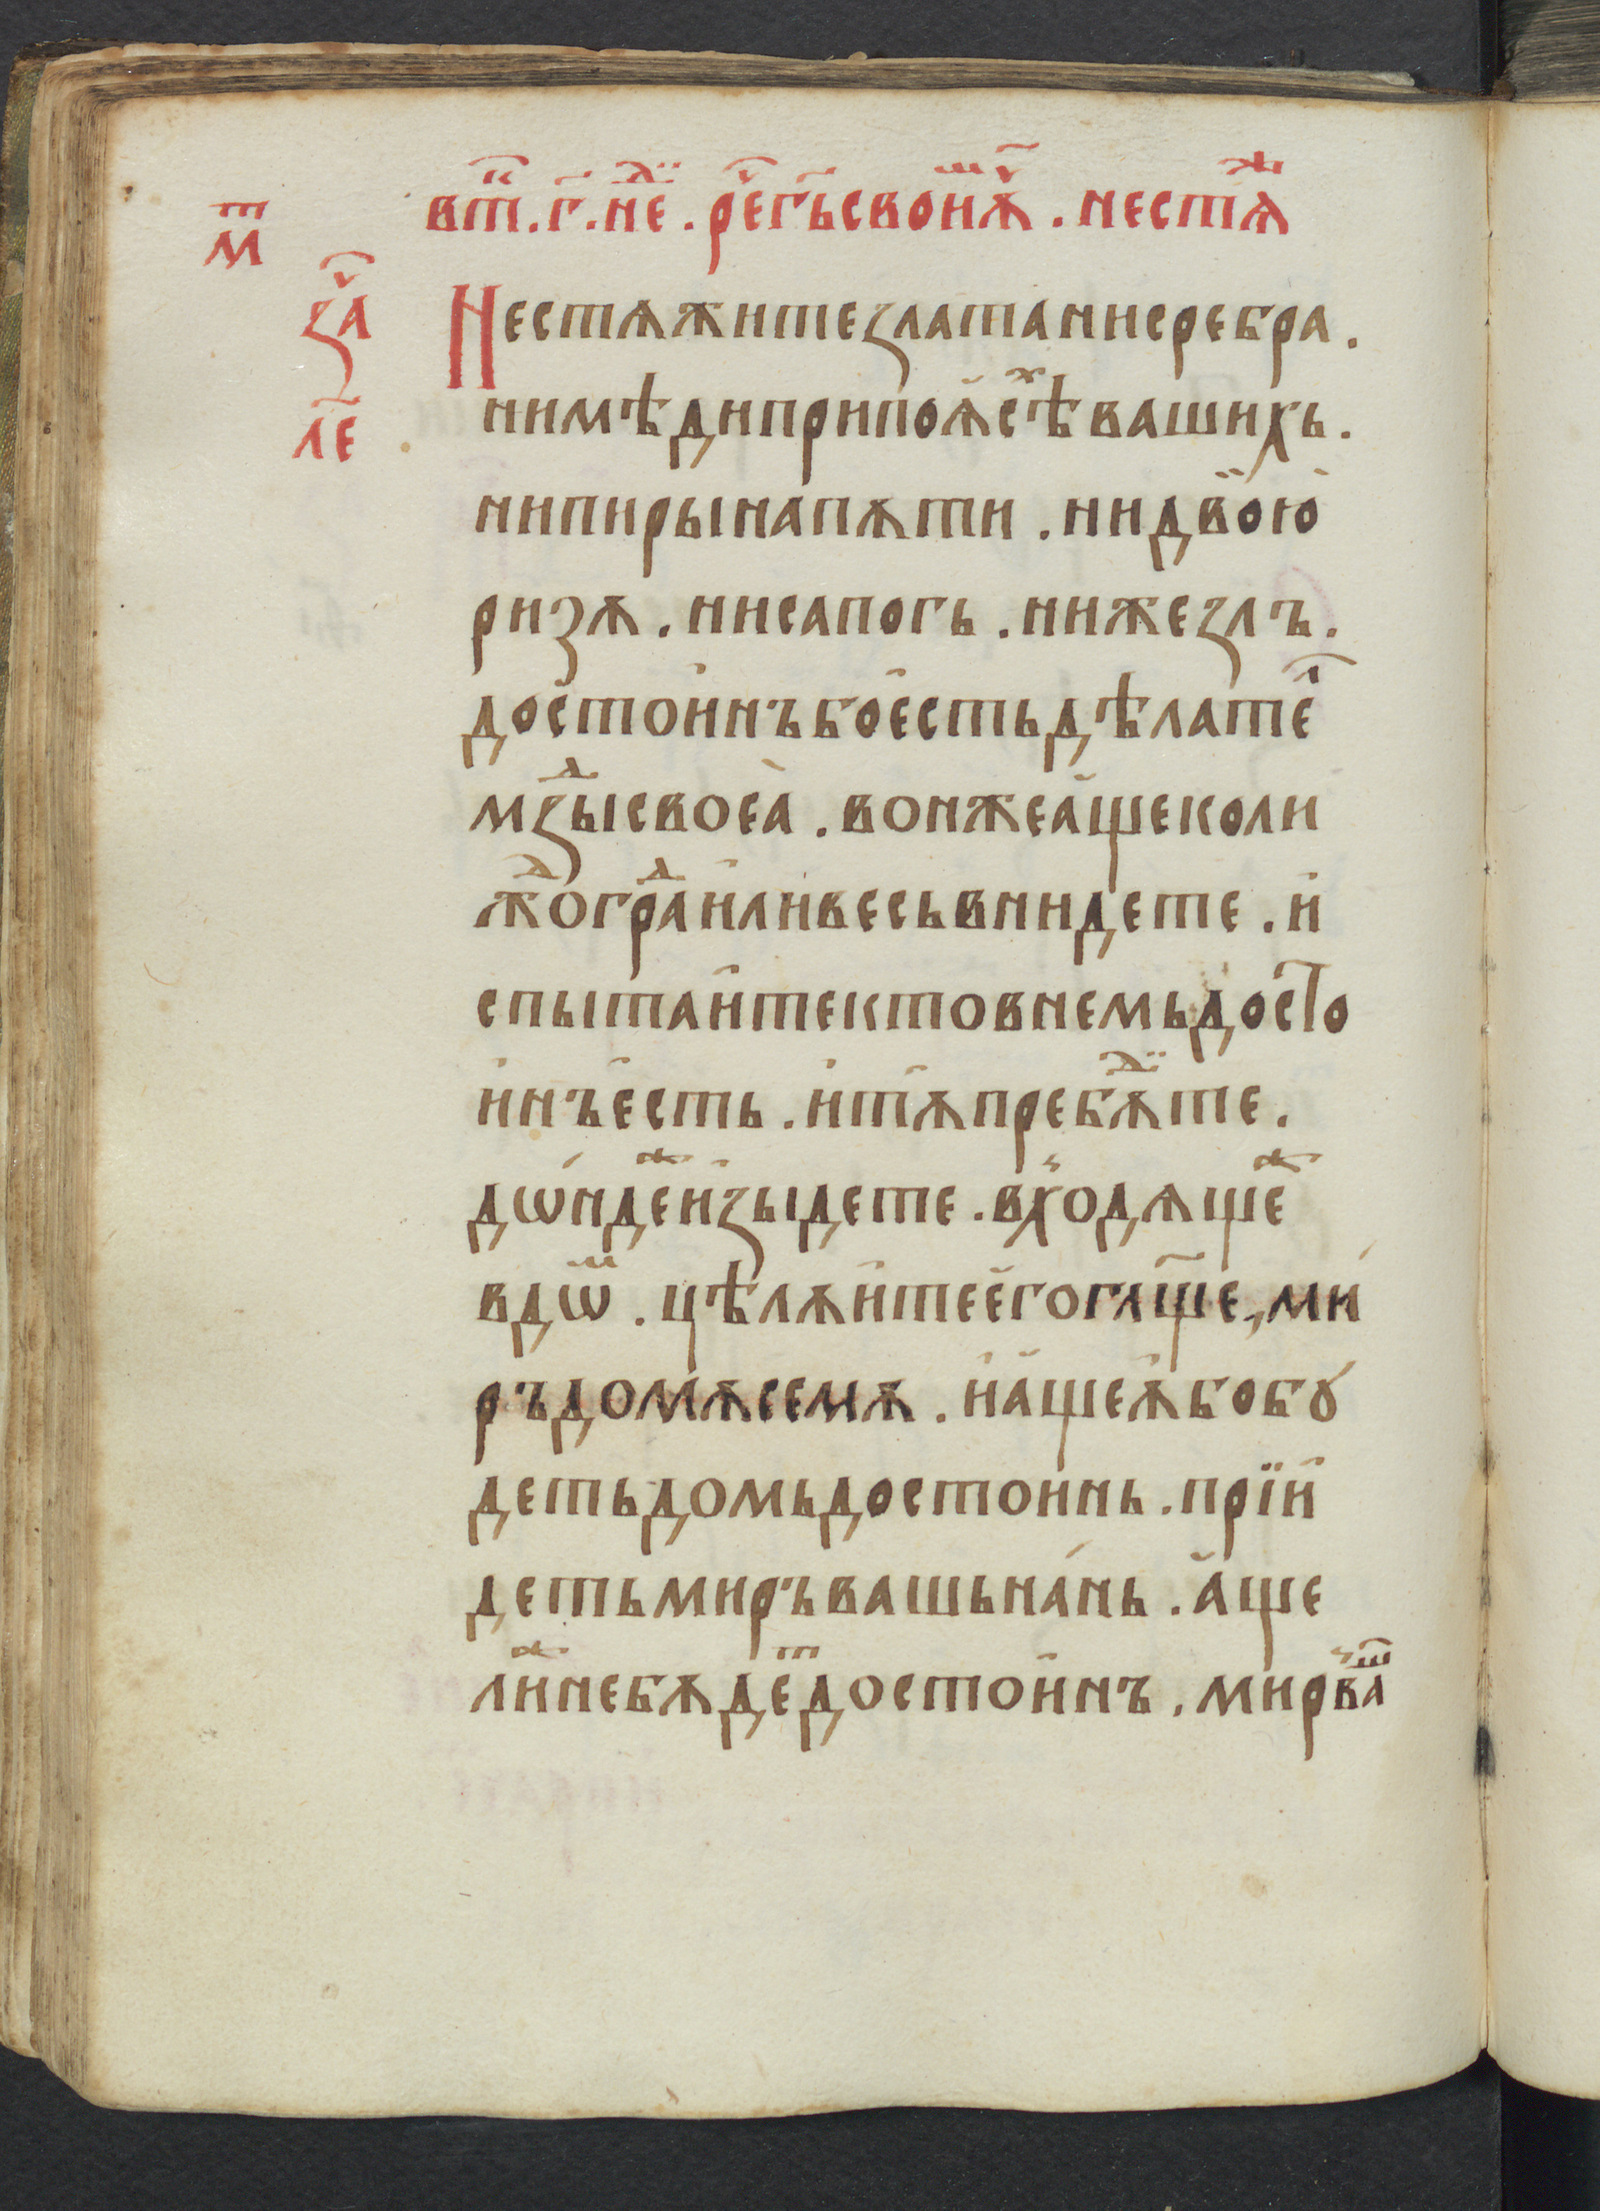 вт҃к . г҃ . нⷣеⷧ . рⷱе гь своиⷨⷱѫ . не стѧⷤ
мⷮ
заⷱ
л҃е
Не стѧжите злата ни сребра .
ни мѣди при поꙗсⷯѣ вашихь .
ни пиры на пѫти . ни двою
ризѫ . ни сапогь . ни жезлъ .
достоинъ бо есть дѣлатеⷧ
мзⷣы своеа . вонже аще коли
жⷣо граⷣ или весь внидете . и
спытаите кто в немь досто
инъ есть . и тѫ пребѫⷣте .
дѡндеⷤ изыдете . входѧщеⷤ
в дѡⷨ . цѣлѫите его глщ҃е , ми
ръ домѫ семѫ . и аще ѫбо бꙋ
деть домь достоинь . прїи
деть миръ вашь на́нь . аще
лиⷤ не бѫдеⷮ достоинъ . мир ваⷲ